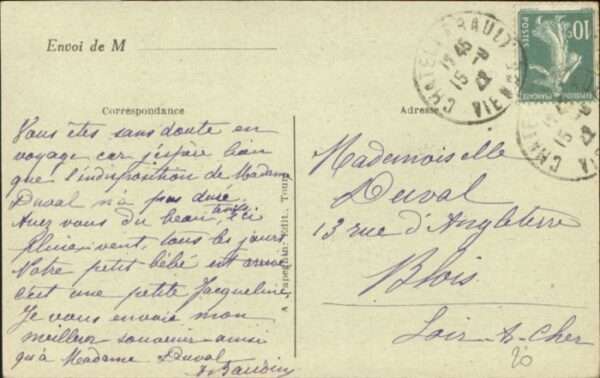 Envoi de M
Correspondance
Vous êtes sans doute en
voyage car j'espère bien
que l'indisposition de Madame
Duval n'a pas duré.
Avez vous du beau temps, Ici
Pluie, vent, tous les jours
Notre petit bébé est arrivé
c'est une petite Jacqueline
Je vous envoie mon
meilleur souvenir ainsi
qu'à Madame Duval
A. Papeghin, Edit. Tours
Adresse
Mademoiselle
Duval
13 rue d'Angleterre
Blois
Loir-&-Cher
20
CHATELLERAULT
VIENNE
15
22
10c
POSTES